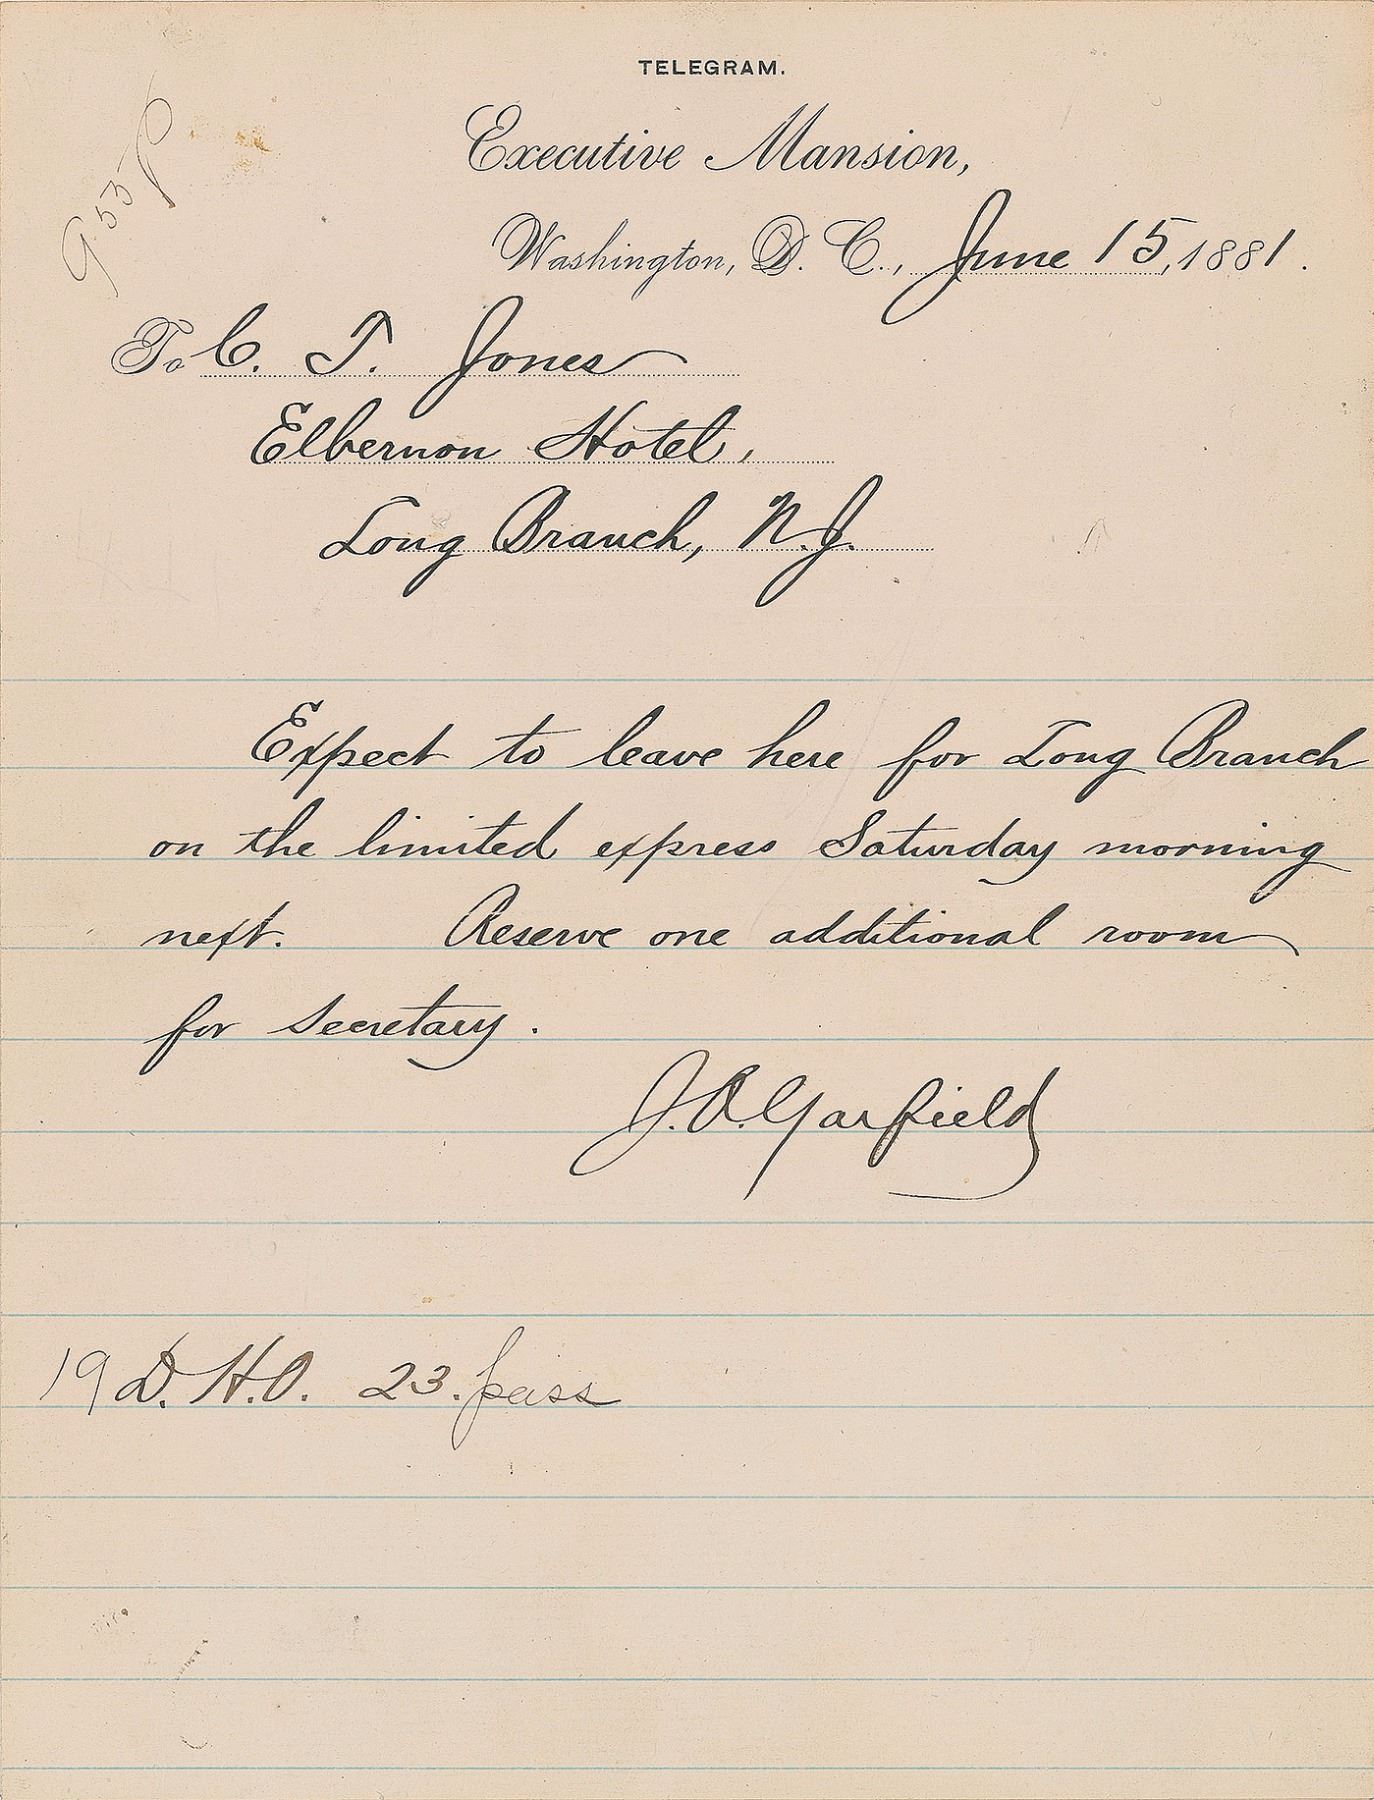 TELEGRAM.
Executive Mansion,
953 P
Washington, D. C., June 15, 1881.
To C. T. Jones
Elbernon Hotel,
Long Branch, N.J.
Expect to leave here for Long Branch
on the limited express Saturday morning
next. Reserve one additional room
for Secretary.
J.A. Garfield
19 D.H.O. 23. paiss